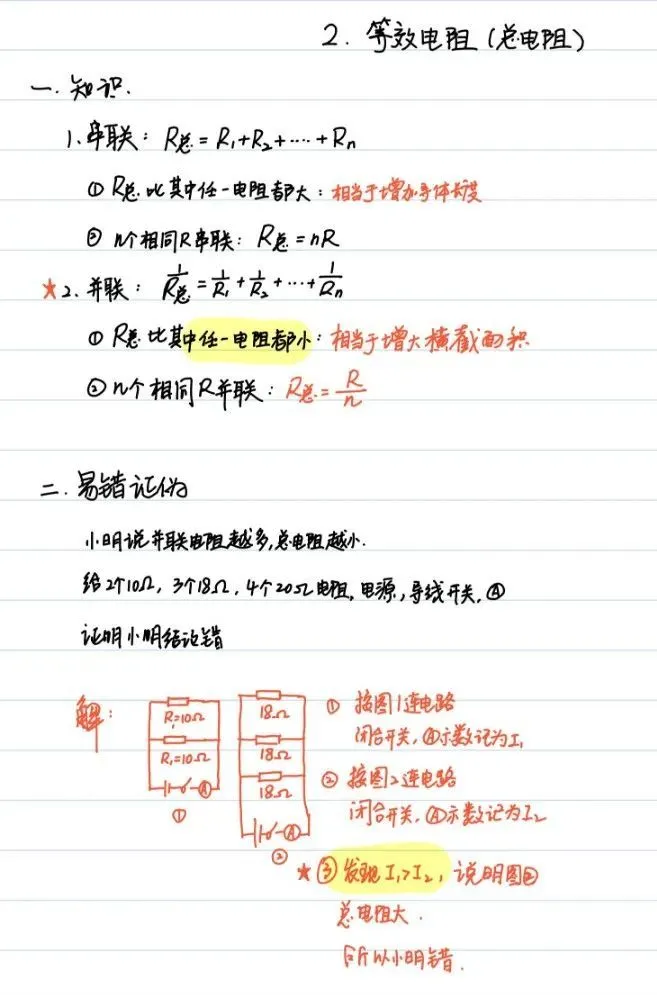 2. 等效电阻(总电阻)
一. 知识.
1. 串联: R总 = R₁+R₂+‥‥+Rn
① R总比其中任一电阻都大: 相当于增加导体长度
② n个相同R串联: R总 = nR
★2. 并联: 1/R总 = 1/R₁ + 1/R₂ + ··· + 1/Rn
① R总比其中任一电阻都小: 相当于增大横截面积
② n个相同R并联: R总 = R/n
二. 易错证伪
小明说并联电阻越多,总电阻越小.
给2个10Ω, 3个18Ω, 4个20Ω电阻, 电源, 导线开关, Ⓐ
证明小明结论错
解:
R₁=10Ω
R₁=10Ω
Ⓐ
①
18Ω
18Ω
18Ω
Ⓐ
②
① 按图1连电路
闭合开关, Ⓐ示数记为I₁
② 按图2连电路
闭合开关, Ⓐ示数记为I₂
★ ③ 发现I₁>I₂, 说明图②
总电阻大.
所以小明错.